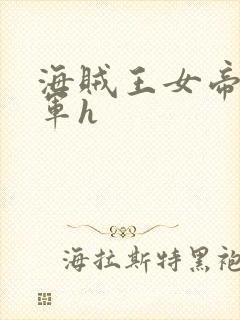 海贼王女帝
军h
海拉斯特黑袍